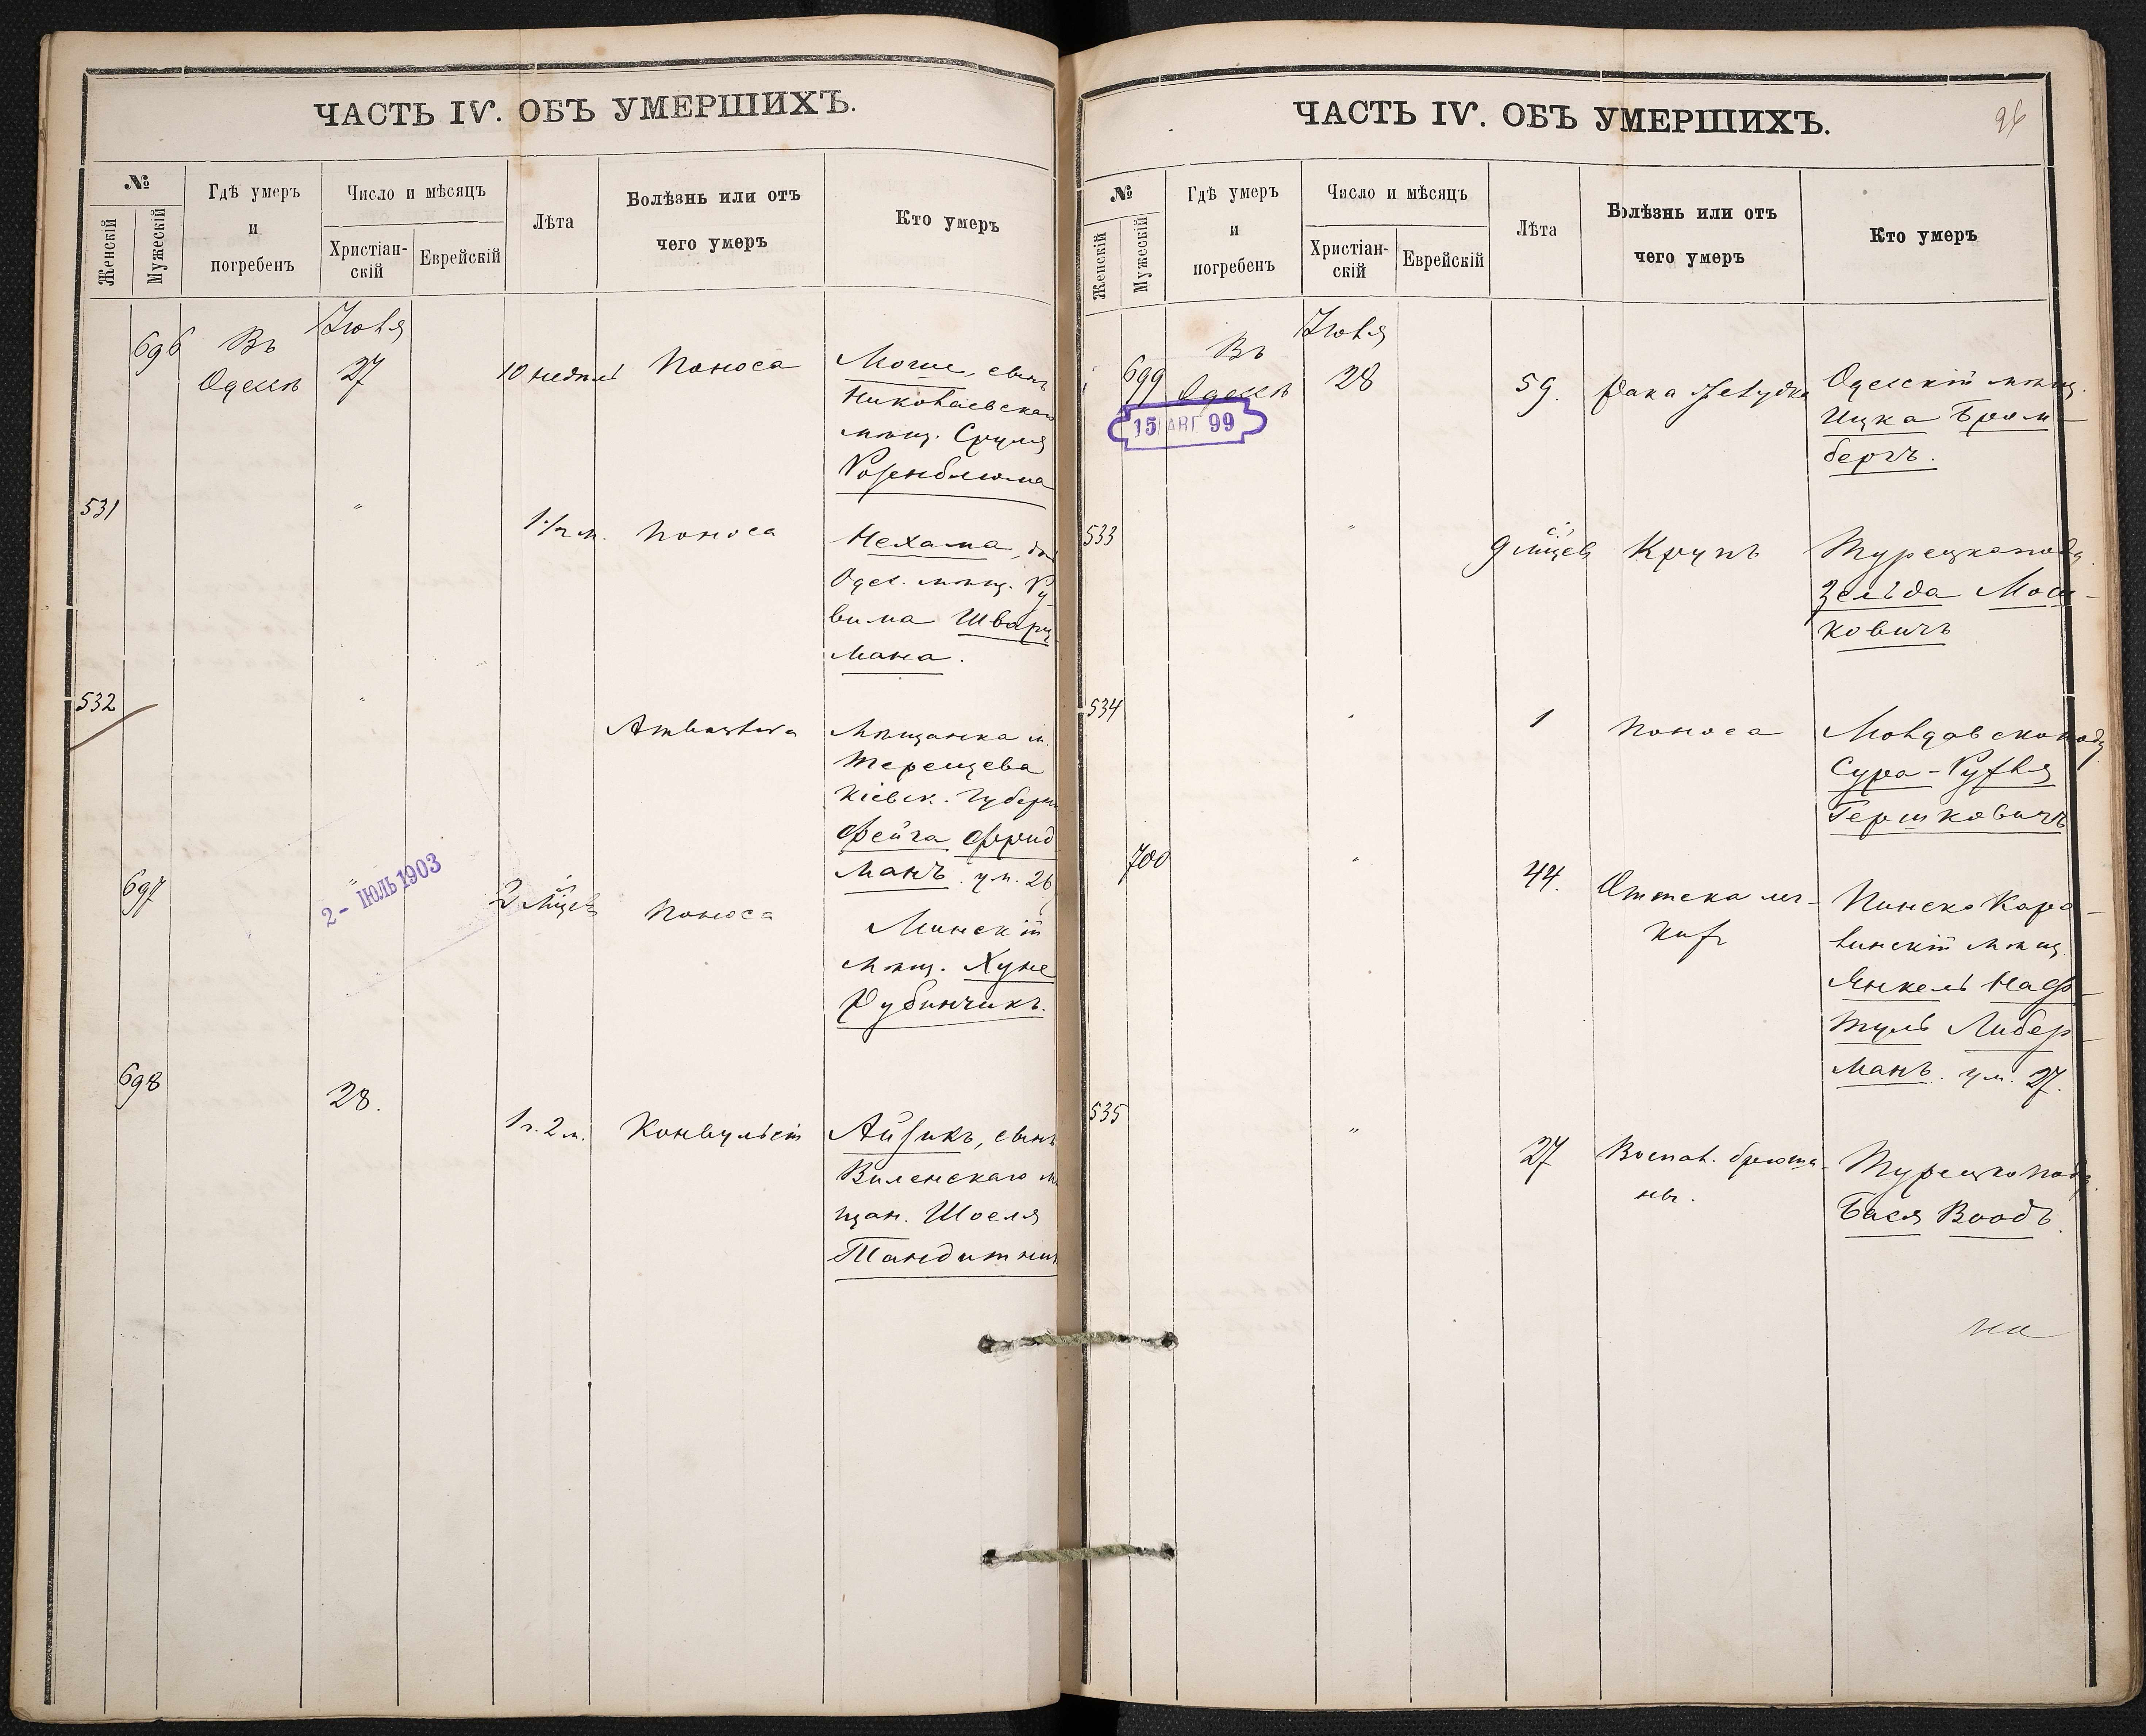 ЧАСТЬ IV. ОБЪ УМЕРШИХЪ.
№
Женскій
Мужескій
Гдѣ умеръ
и
погребенъ
Число и мѣсяцъ
Христіан-
скій
Еврейскій
Лѣта
Болѣзнь или отъ
чего умеръ
Кто умеръ
696
Въ
Одессѣ
Іюля
27
10 недѣль
Поноса
Моше, сынъ
Николаевскаго
мѣщ. Сруля
Розенблюма
531
"
1½ м.
Поноса
Нехама,
Одес. мѣщ. Ру-
вима Шварц
мана.
532
"
Мѣщанка м.
Кіевск. Губерн
Фейга Фрид
манъ. ум. 26
697
"
2 - ІЮЛЬ 1903
2 мѣсяц.
Поноса
Минскій
мѣщ. Хуне
Рубинчикъ.
698
28.
1 г. 2 м.
Конвульсій
Айзикъ, сынъ
Виленскаго мѣ
щан. Шоеля
Тандитник
ЧАСТЬ IV. ОБЪ УМЕРШИХЪ.
96
№
Женскій
Мужескій
Гдѣ умеръ
и
погребенъ
Число и мѣсяцъ
Христіан-
скій
Еврейскій
Лѣта
Болѣзнь или отъ
чего умеръ
Кто умеръ
699
Въ
Одессѣ
15 АВГ 99
Іюля
28
59.
Рака желудка
Одесскій мѣщ.
Ицка Бром-
бергъ.
533
"
9 мѣсяцев
Крупъ
Турецкопод
Зельда Мош-
ковичъ
534
"
1
Поноса
Молдавскопод
Сура-Рухля
Гершковичъ
700
"
44.
Отека лег-
кихъ
Пинско Каро-
линскій мѣщ.
Янкель Наф-
туль Либер-
манъ. ум. 27.
535
"
27
Воспал. брюши-
ны.
Турецкопод.
Бася Воодъ.